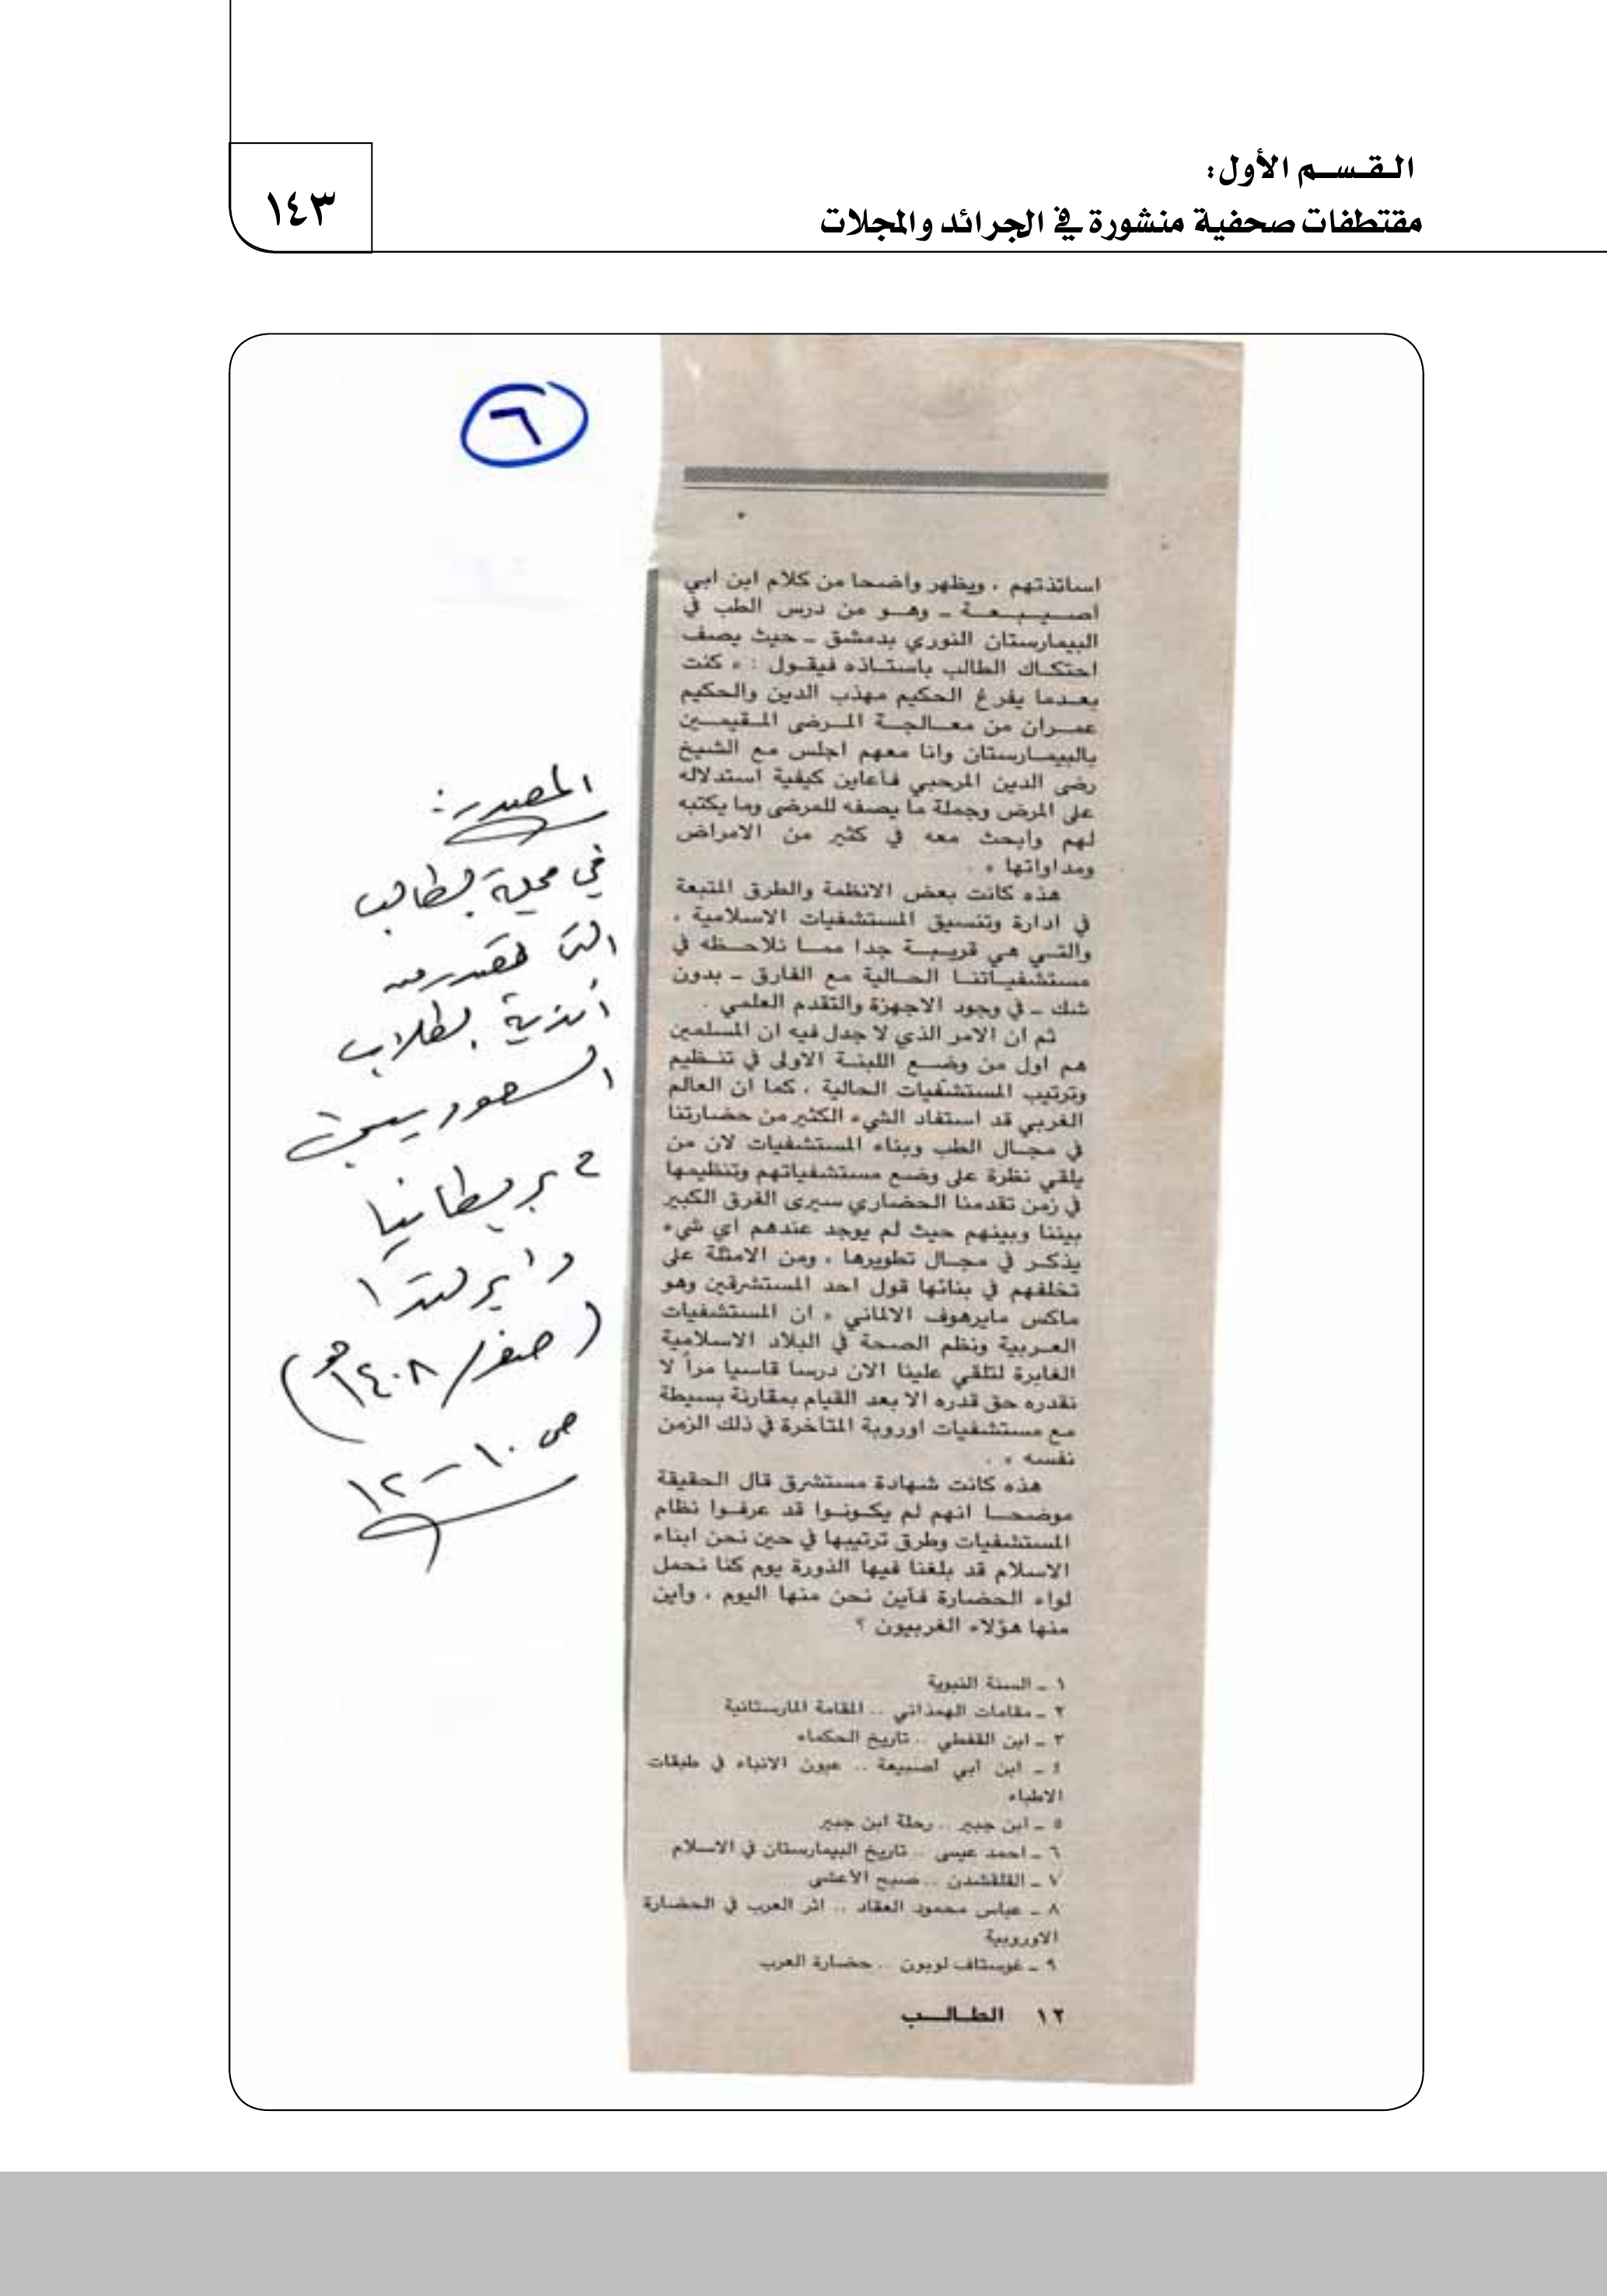 القسم الأول:
مقتطفات صحفية منشورة في الجرائد والمجلات
١٤٣
٦
اساتذتهم ، ويظهر واضحا من كلام ابن ابي
اصيبعة ـ وهو من درس الطب في
البيمارستان النوري بدمشق ـ حيث يصف
احتكاك الطالب باستاذه فيقول : « كنت
بعدما يفرغ الحكيم مهذب الدين والحكيم
عمران من معالجة المرضى المقيمين
بالبيمارستان وانا معهم اجلس مع الشيخ
رضى الدين المرحبي فأعاين كيفية استدلاله
على المرض وجملة ما يصفه للمرضى وما يكتبه
لهم وابحث معه في كثير من الامراض
ومداواتها » .
هذه كانت بعض الانظمة والطرق المتبعة
في ادارة وتنسيق المستشفيات الاسلامية ،
والتي هي قريبة جدا مما نلاحظه في
مستشفياتنا الحالية مع الفارق ـ بدون
شك ـ في وجود الاجهزة والتقدم العلمي .
ثم ان الامر الذي لا جدل فيه ان المسلمين
هم اول من وضع اللبنة الاولى في تنظيم
وترتيب المستشفيات الحالية ، كما ان العالم
الغربي قد استفاد الشيء الكثير من حضارتنا
في مجال الطب وبناء المستشفيات لان من
يلقي نظرة على وضع مستشفياتهم وتنظيمها
في زمن تقدمنا الحضاري سيرى الفرق الكبير
بيننا وبينهم حيث لم يوجد عندهم اي شيء
يذكر في مجال تطويرها ، ومن الامثلة على
تخلفهم في بنائها قول احد المستشرقين وهو
ماكس مايرهوف الالماني « ان المستشفيات
العربية ونظم الصحة في البلاد الاسلامية
الغابرة لتلقي علينا الان درسا قاسيا مراً لا
نقدره حق قدره الا بعد القيام بمقارنة بسيطة
مع مستشفيات اوروبة المتاخرة في ذلك الزمن
نفسه » .
هذه كانت شهادة مستشرق قال الحقيقة
موضحا انهم لم يكونوا قد عرفوا نظام
المستشفيات وطرق ترتيبها في حين نحن ابناء
الاسلام قد بلغنا فيها الذورة يوم كنا نحمل
لواء الحضارة فأين نحن منها اليوم ، واين
منها هؤلاء الغربيون ؟
١ ـ السنة النبوية
٢ ـ مقامات الهمذاني .. المقامة المارستانية
٣ ـ ابن القفطي .. تاريخ الحكماء
٤ ـ ابن أبي اصيبعة .. عيون الانباء في طبقات
الاطباء
٥ ـ ابن جبير .. رحلة ابن جبير
٦ ـ احمد عيسى .. تاريخ البيمارستان في الاسلام
٧ ـ القلقشدن .. صبح الأعشى
٨ ـ عباس محمود العقاد .. اثر العرب في الحضارة
الاوروبية
٩ ـ غوستاف لوبون .. حضارة العرب
١٢ الطالب
المصدر:
في مجلة الطالب
التي تصدر من
أندية الطلاب
السعوديين
في بريطانيا
وايرلندا
(صفر/١٤٠٨هـ)
ص ١٠-١٢